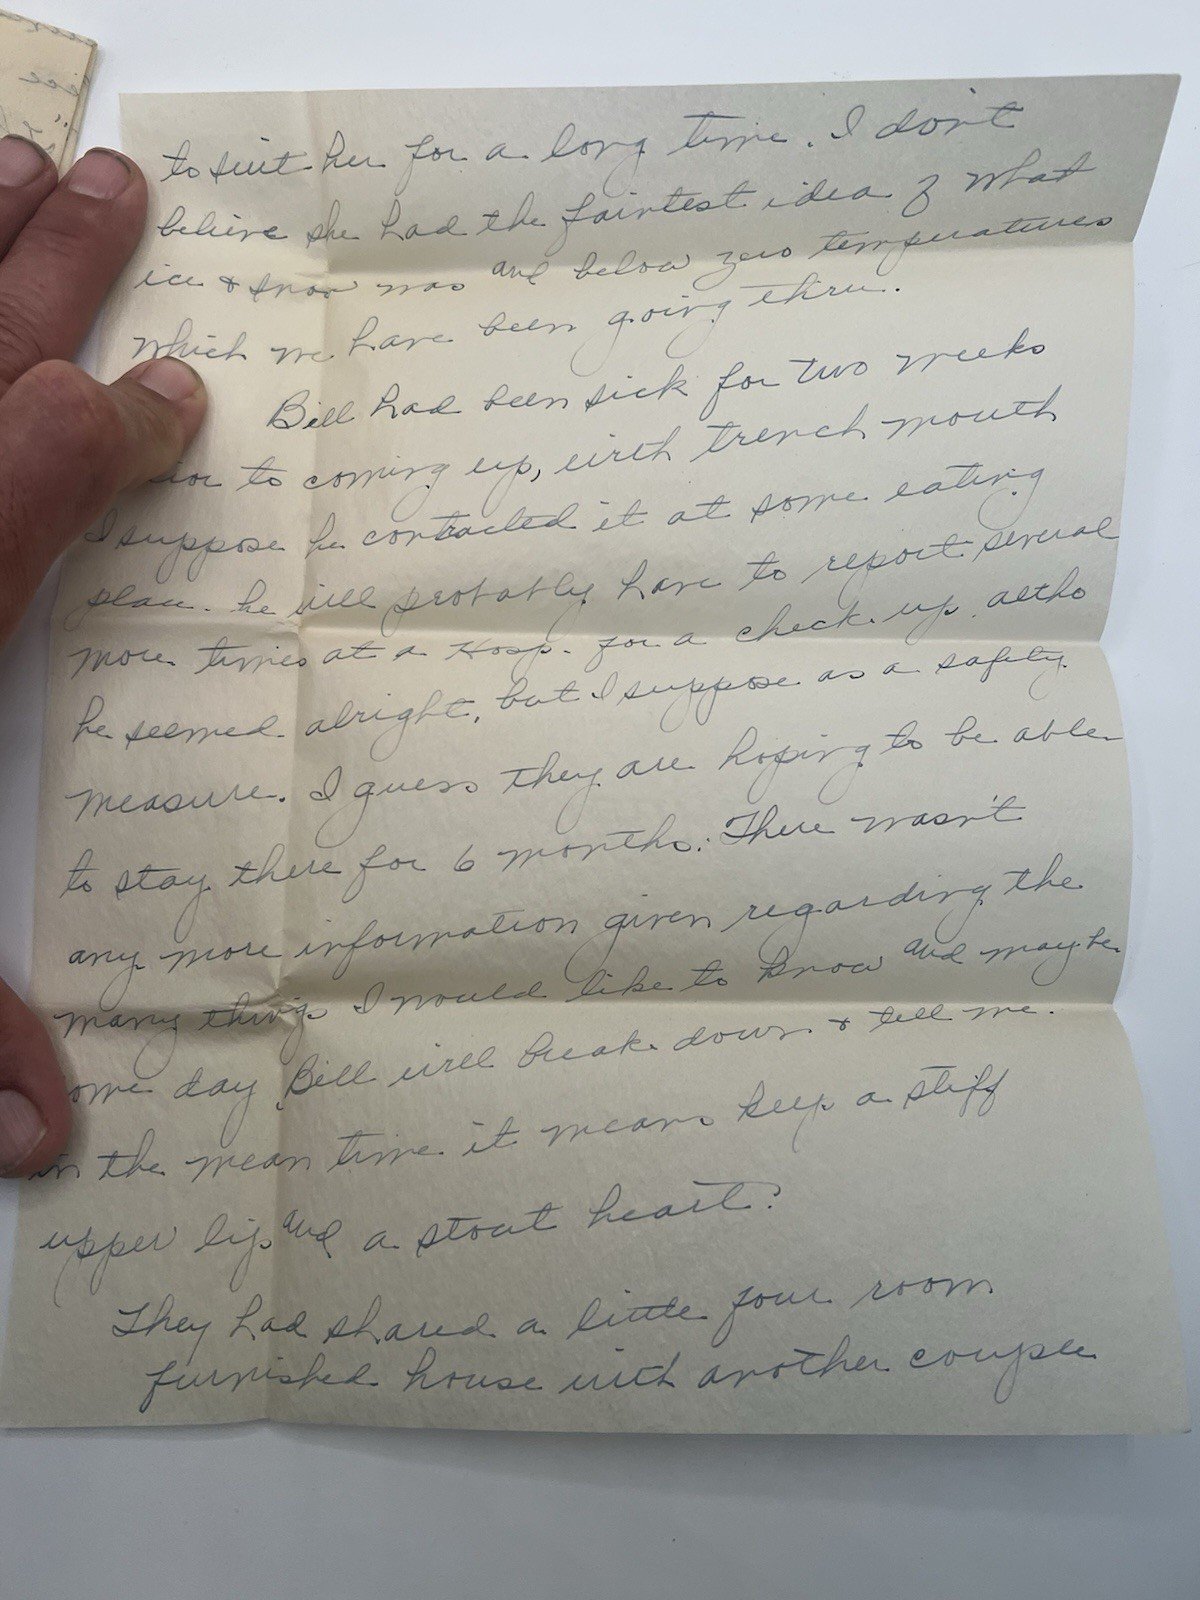 to suit her for a long time. I don't
believe she had the faintest idea of what
ice & snow was and below zero temperatures
which we have been going thru.
Bill had been sick for two weeks
ior to coming up, with trench mouth
I suppose he contracted it at some eating
place. he will probably have to report several
more times at a Hosp. for a check up altho
he seemed alright, but I suppose as a safety
measure. I guess they are hoping to be able
to stay there for 6 months. There wasn't
any more information given regarding the
many things I would like to know and maybe
ome day Bill will break down & tell me.
in the mean time it means keep a stiff
upper lip and a stout heart.
They had shared a little four room
furnished house with another couple